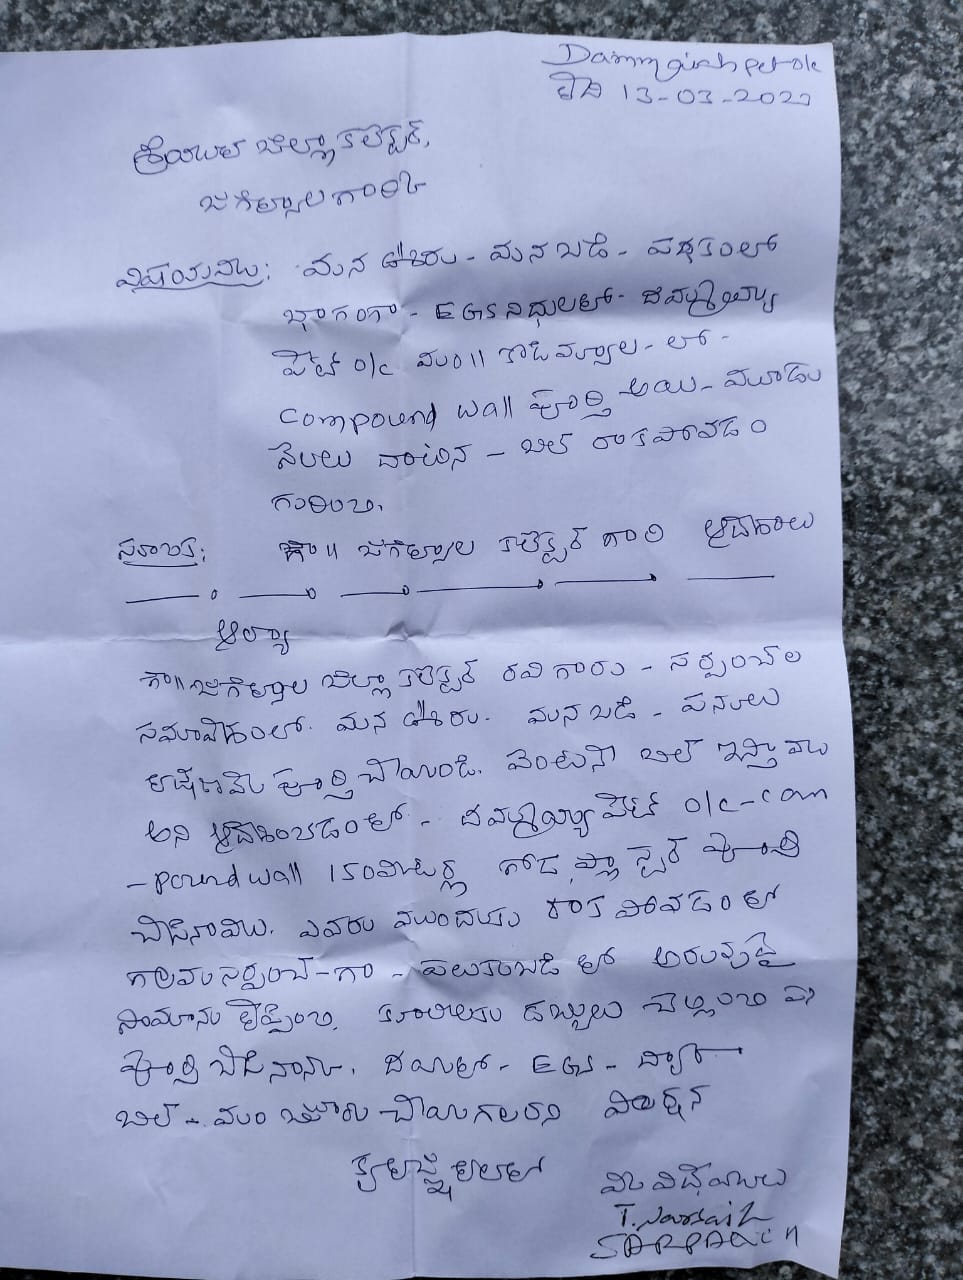 తేది 13-03-202
శ్రీయుత జిల్లా కలెక్టర్,
జగిత్యాల గారికి
విషయము: మన ఊరు - మన బడి - పథకంలో
భాగంగా - EGS నిధులతో - దమ్మయ్య
పేట o/c మం॥ కొడిమ్యాల - లో -
compound wall పూర్తి అయి - మూడు
నెలలు దాటిన - బిల్ రాకపోవడం
గురించి.
సూచిక: గౌ॥ జగిత్యాల కలెక్టర్ గారి ఆదేశాలు
ఆర్యా
గౌ॥ జగిత్యాల జిల్లా కలెక్టర్ రవి గారు - సర్పంచ్‌ల
సమావేశంలో. మన ఊరు. మన బడి - పనులు
తక్షణమే పూర్తి చేయండి. వెంటనే బిల్ ఇస్తాము
అని ఆదేశించడంతో - దమ్మయ్యపేట్ o/c - com
- pound wall 150 మీటర్ల గోడ, ప్లాస్టర్ పూర్తి
చేసినాము. ఎవరు ముందుకు రాక పోవడంతో
గ్రామ సర్పంచ్ - గా - పలుకుబడితో అరువుపై
సామాను తెప్పించి, కూలీలకు డబ్బులు చెల్లించి
పూర్తి చేసినాను. దయతో - EGS - ద్వారా
బిల్ - మంజూరు చేయగలరని విజ్ఞప్తి
కృతజ్ఞతలతో
మీ విధేయులు
T. Narsaih
SARPANCH